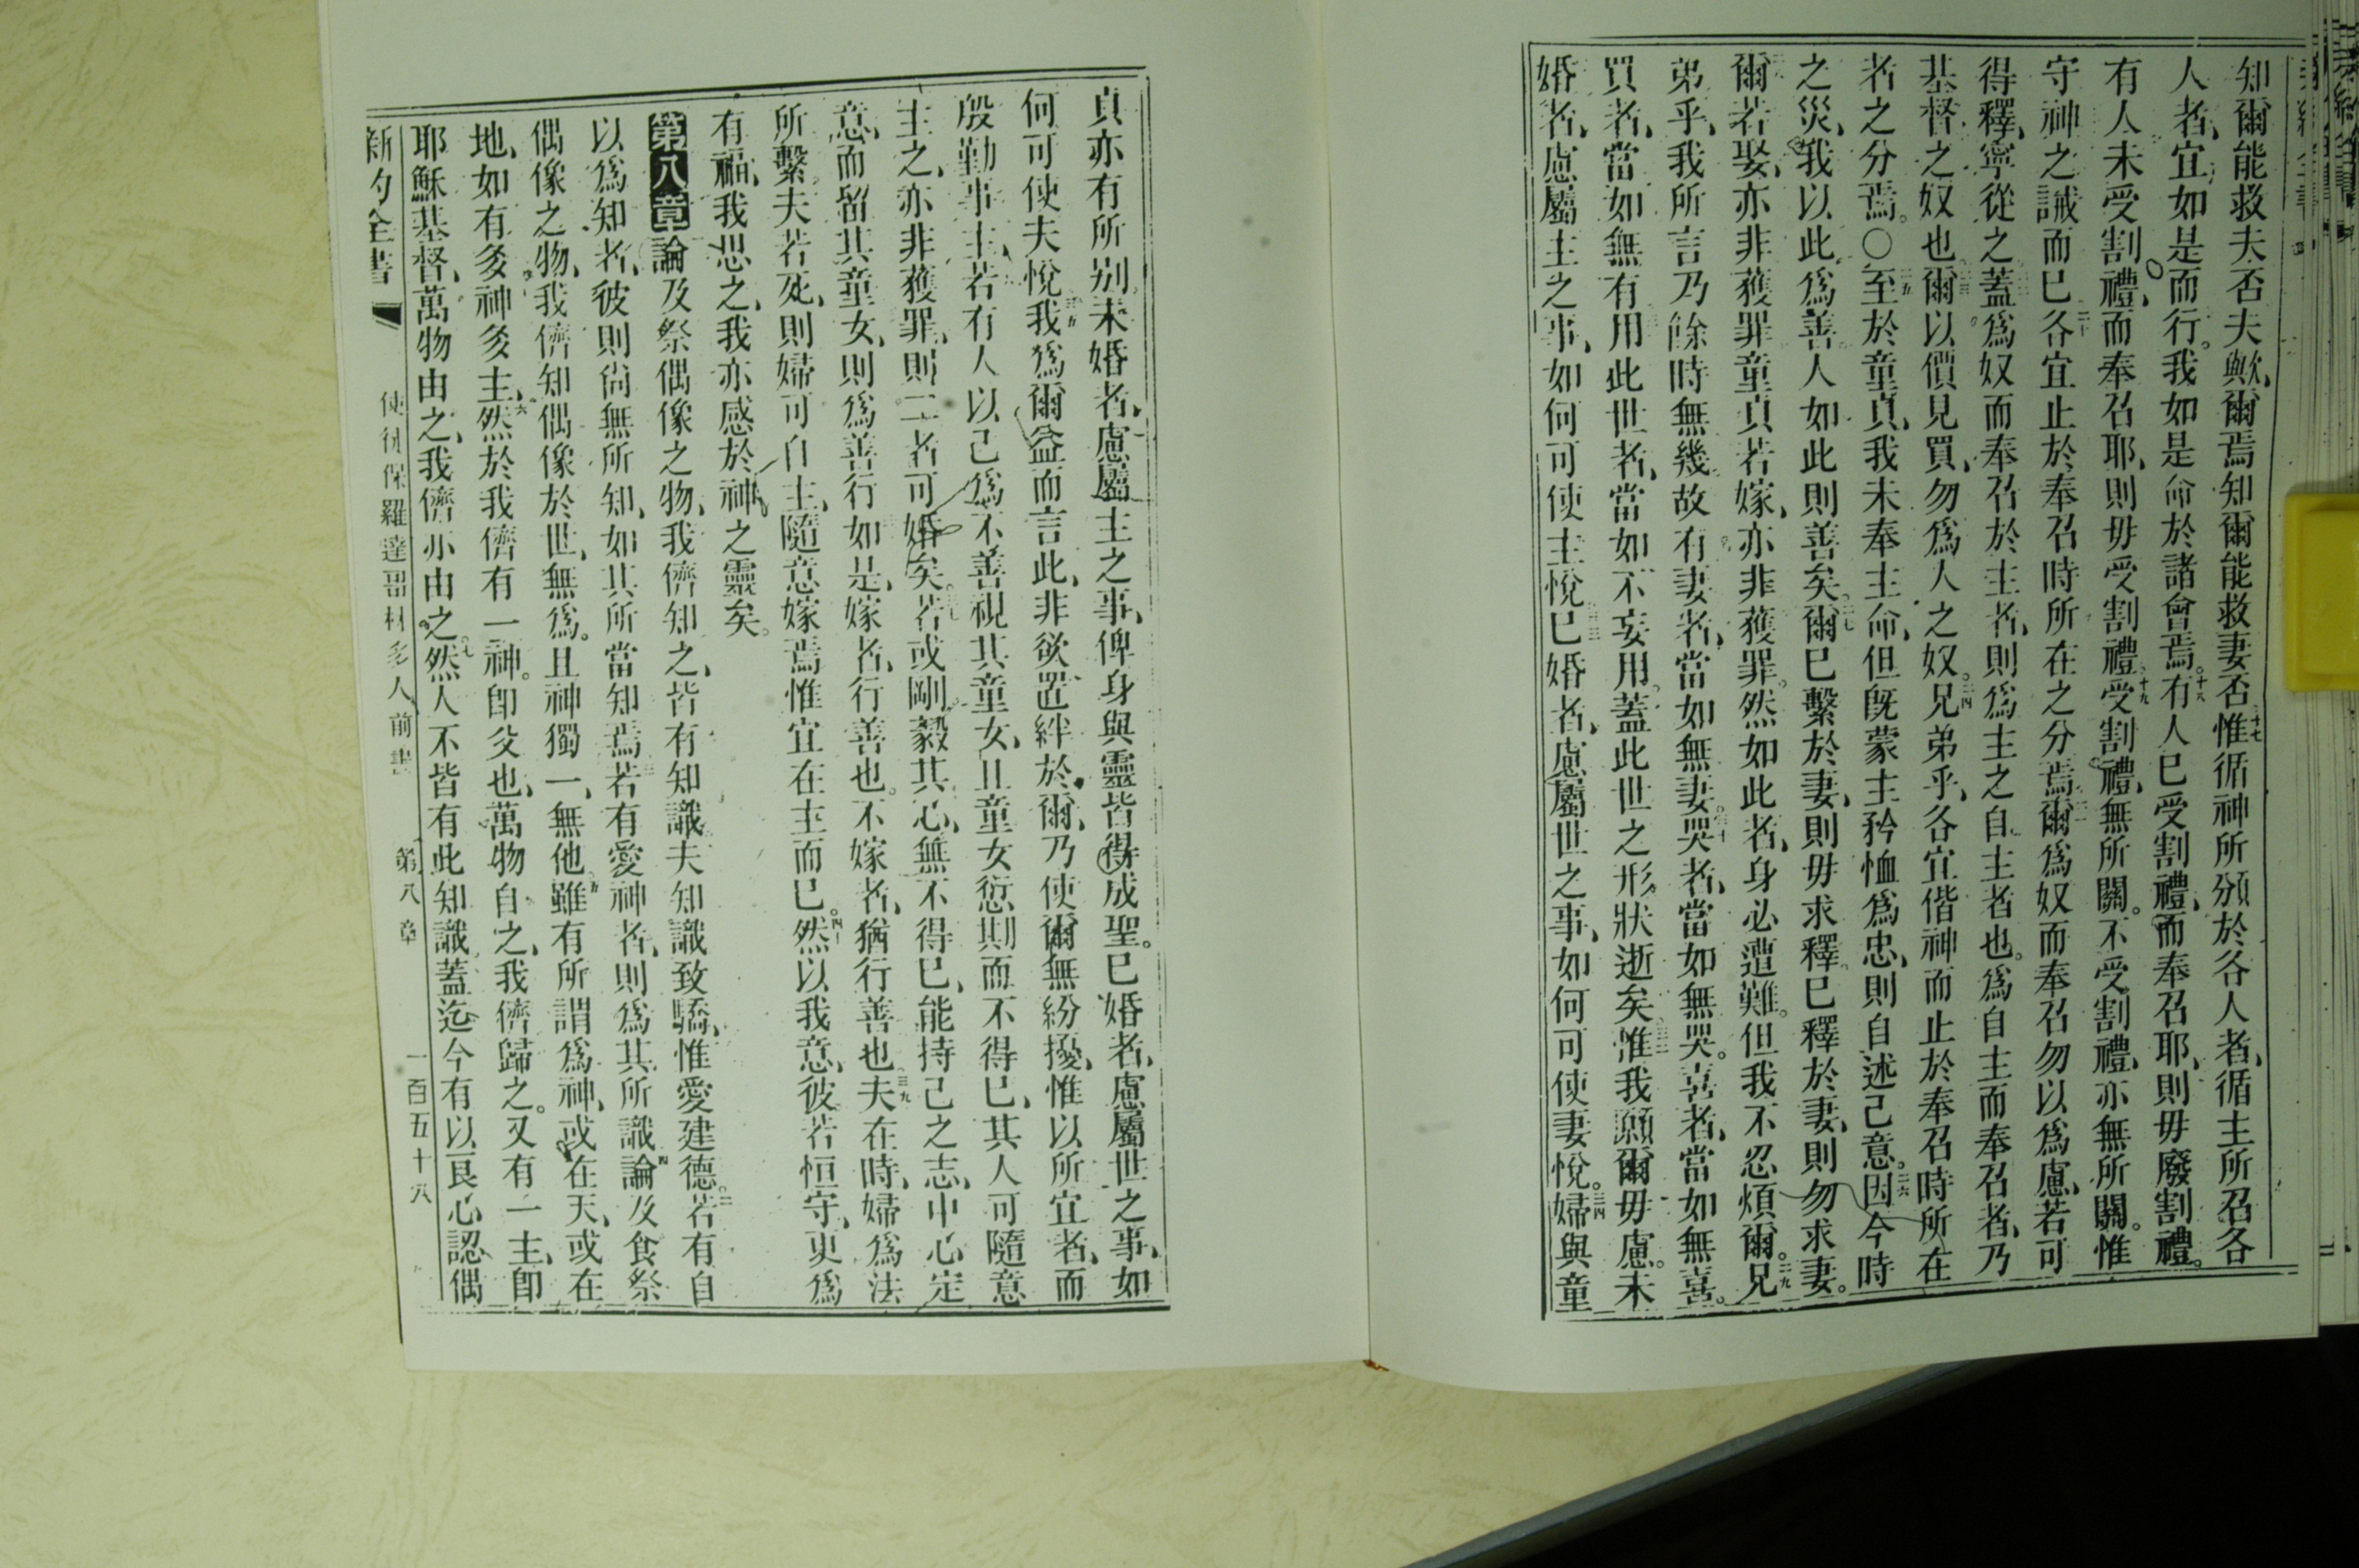 知爾能救夫否夫歟、爾焉知爾能救妻否十七惟循神所頒於各人者、循主所召各
人者、宜如是而行。我如是命於諸會焉。十八有人已受割禮、而奉召耶、則毋廢割禮。
有人未受割禮、而奉召耶、則毋受割禮。十九受割禮、無所關。不受割禮、亦無所關。惟
守神之誡而已二十各宜止於奉召時所在之分焉二一爾為奴而奉召勿以為慮、若可
得釋、寧從之二二蓋為奴而奉召於主者、則為主之自主者也。為自主而奉召者、乃
基督之奴也二三爾以價見買、勿為人之奴。二四兄弟乎、各宜偕神而止於奉召時所在
者之分焉。〇二五至於童貞、我未奉主命、但旣蒙主矜恤為忠、則自述己意。二六因今時
之災、我以此為善。人如此則善矣。二七爾已繫於妻、則毋求釋。已釋於妻、則勿求妻。
爾若娶、亦非獲罪童貞若嫁、亦非獲罪。然如此者、身必遭難。但我不忍煩爾。二九兄
弟乎、我所言乃餘時無幾故有妻者、當如無妻。三十哭者、當如無哭。喜者、當如無喜。
買者、當如無有用此世者、當如不妄用。蓋此世之形狀逝矣惟我願爾毋慮。未
婚者、慮屬主之事、如何可使主悅三三已婚者、慮屬世之事、如何可使妻悅。三四婦與童
貞亦有所別。未婚者、慮屬主之事、俾身與靈皆得成聖。已婚者、慮屬世之事、如
何可使夫悅三五我為爾益而言此、非欲置絆於爾、乃使爾無紛擾、惟以所宜者、而
殷勤事主、若有人以己為不善視其童女、且童女愆期而不得已、其人可隨意
主之、亦非獲罪、則二者可婚矣。三七若或剛毅其心、無不得已、能持己之志、中心定
意、而留其童女、則為善行如是、嫁者、行善也。不嫁者、猶行善也三九夫在時、婦為法
所繫。夫若死、則婦可自主、隨意嫁焉惟宜在主而已。四十然以我意、彼若恒守、更為
有福、我思之、我亦感於神之靈矣。
第八章論及祭偶像之物、我儕知之、皆有知識夫知識致驕、惟愛建德。二若有自
以為知者、彼則尚無所知、如其所當知焉三若有愛神者、則為其所識四論及食祭
偶像之物、我儕知偶像於世、無為。且神獨一、無他五雖有所謂為神、或在天、或在
地、如有多神多主、六然於我儕有一神。卽父也、萬物自之、我儕歸之。又有一主、卽
耶穌基督、萬物由之、我儕亦由之。七然人不皆有此知識蓋迄今有以良心認偶
新約全書 使徒保羅達哥林多人前書 第八章 一百五十八